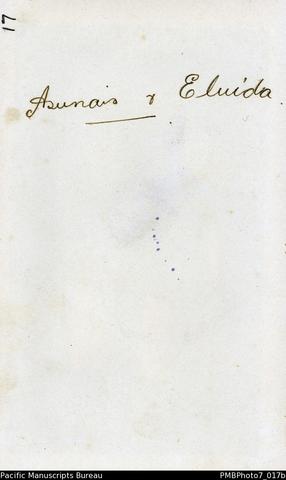 17
Asunais & Eluida
Pacific Manuscripts Bureau PMBPhoto7_017b